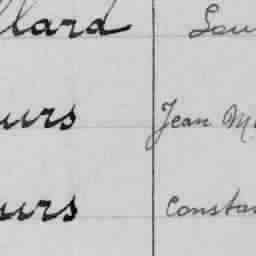 llard Lou
urs Jean M
urs Consta